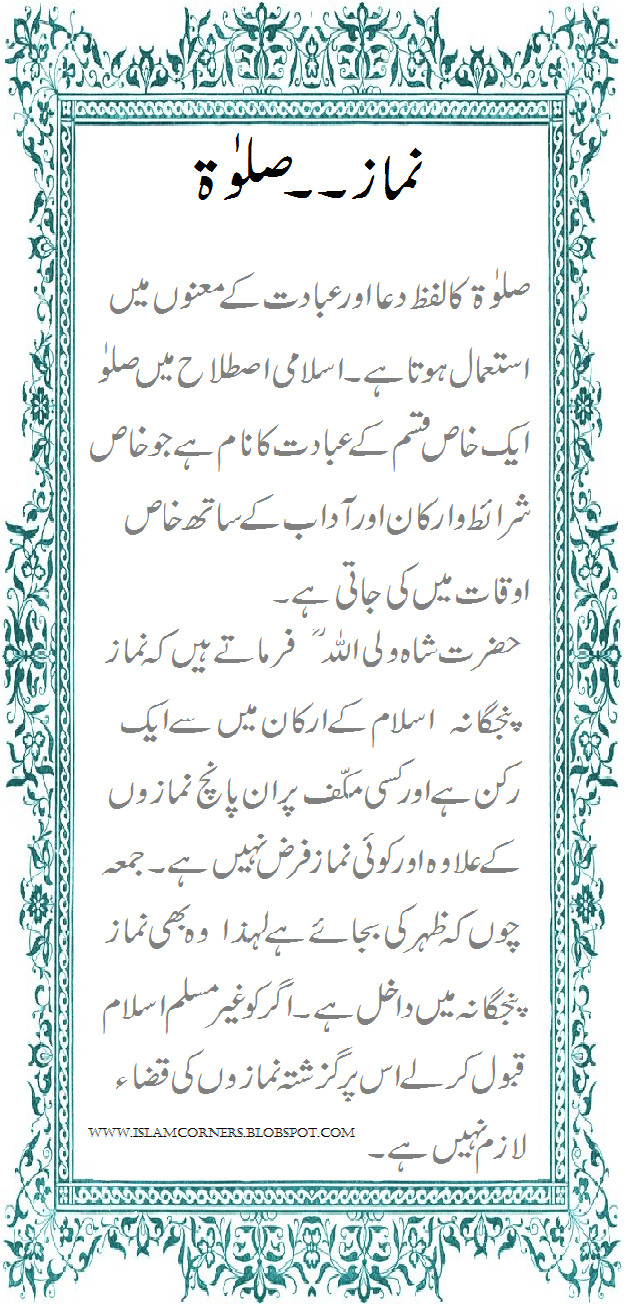 نماز۔۔صلوٰۃ
صلوٰۃ کا لفظ دعا اور عبادت کے معنوں میں
استعمال ہوتا ہے۔ اسلامی اصطلاح میں صلوٰ
ایک خاص قسم کے عبادت کا نام ہے جو خاص
شرائط و ارکان اور آداب کے ساتھ خاص
اوقات میں کی جاتی ہے۔
حضرت شاہ ولی اللہ ؒ فرماتے ہیں کہ نماز
پنجگانہ اسلام کے ارکان میں سے ایک
رکن ہے اور کسی مکلّف پر ان پانچ نمازوں
کے علاوہ اور کوئی نماز فرض نہیں ہے۔ جمعہ
چوں کہ ظہر کی بجائے ہے لہذا وہ بھی نماز
پنجگانہ میں داخل ہے۔ اگر کو غیر مسلم اسلام
قبول کر لے اس پر گزشتہ نمازوں کی قضاء
لازم نہیں ہے۔
WWW.ISLAMCORNERS.BLOBSPOT.COM